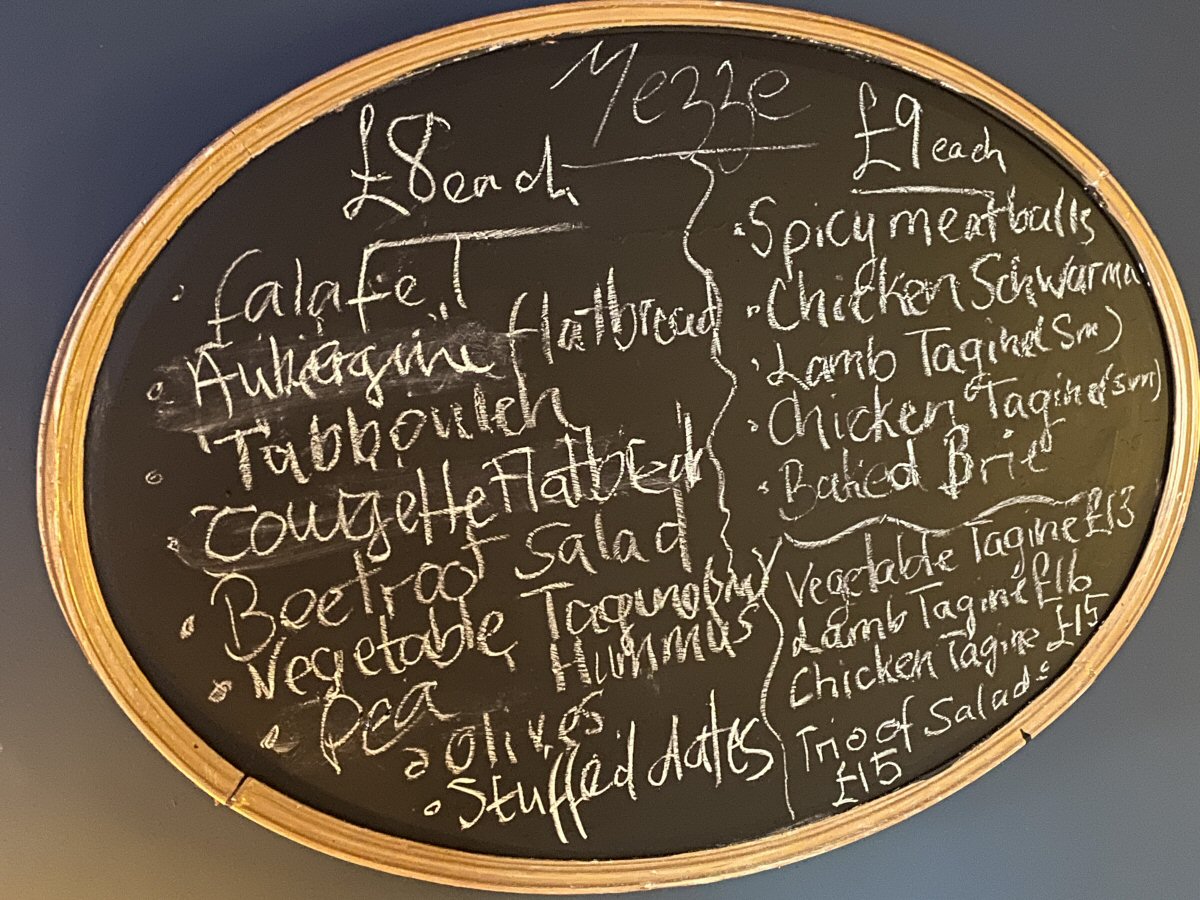 Mezze
£8 each
falafel
Aubergine flatbread
Tabbouleh
Courgette Flatbread
Beetroot Salad
Vegetable Tagine (sm)
Pea Hummus
Olives
Stuffed dates
£9 each
Spicy meatballs
Chicken Schwarma
Lamb Tagine (Sm)
Chicken Tagine (sm)
Baked Brie
Vegetable Tagine £13
Lamb Tagine £16
Chicken Tagine £15
Trio of Salads
£15